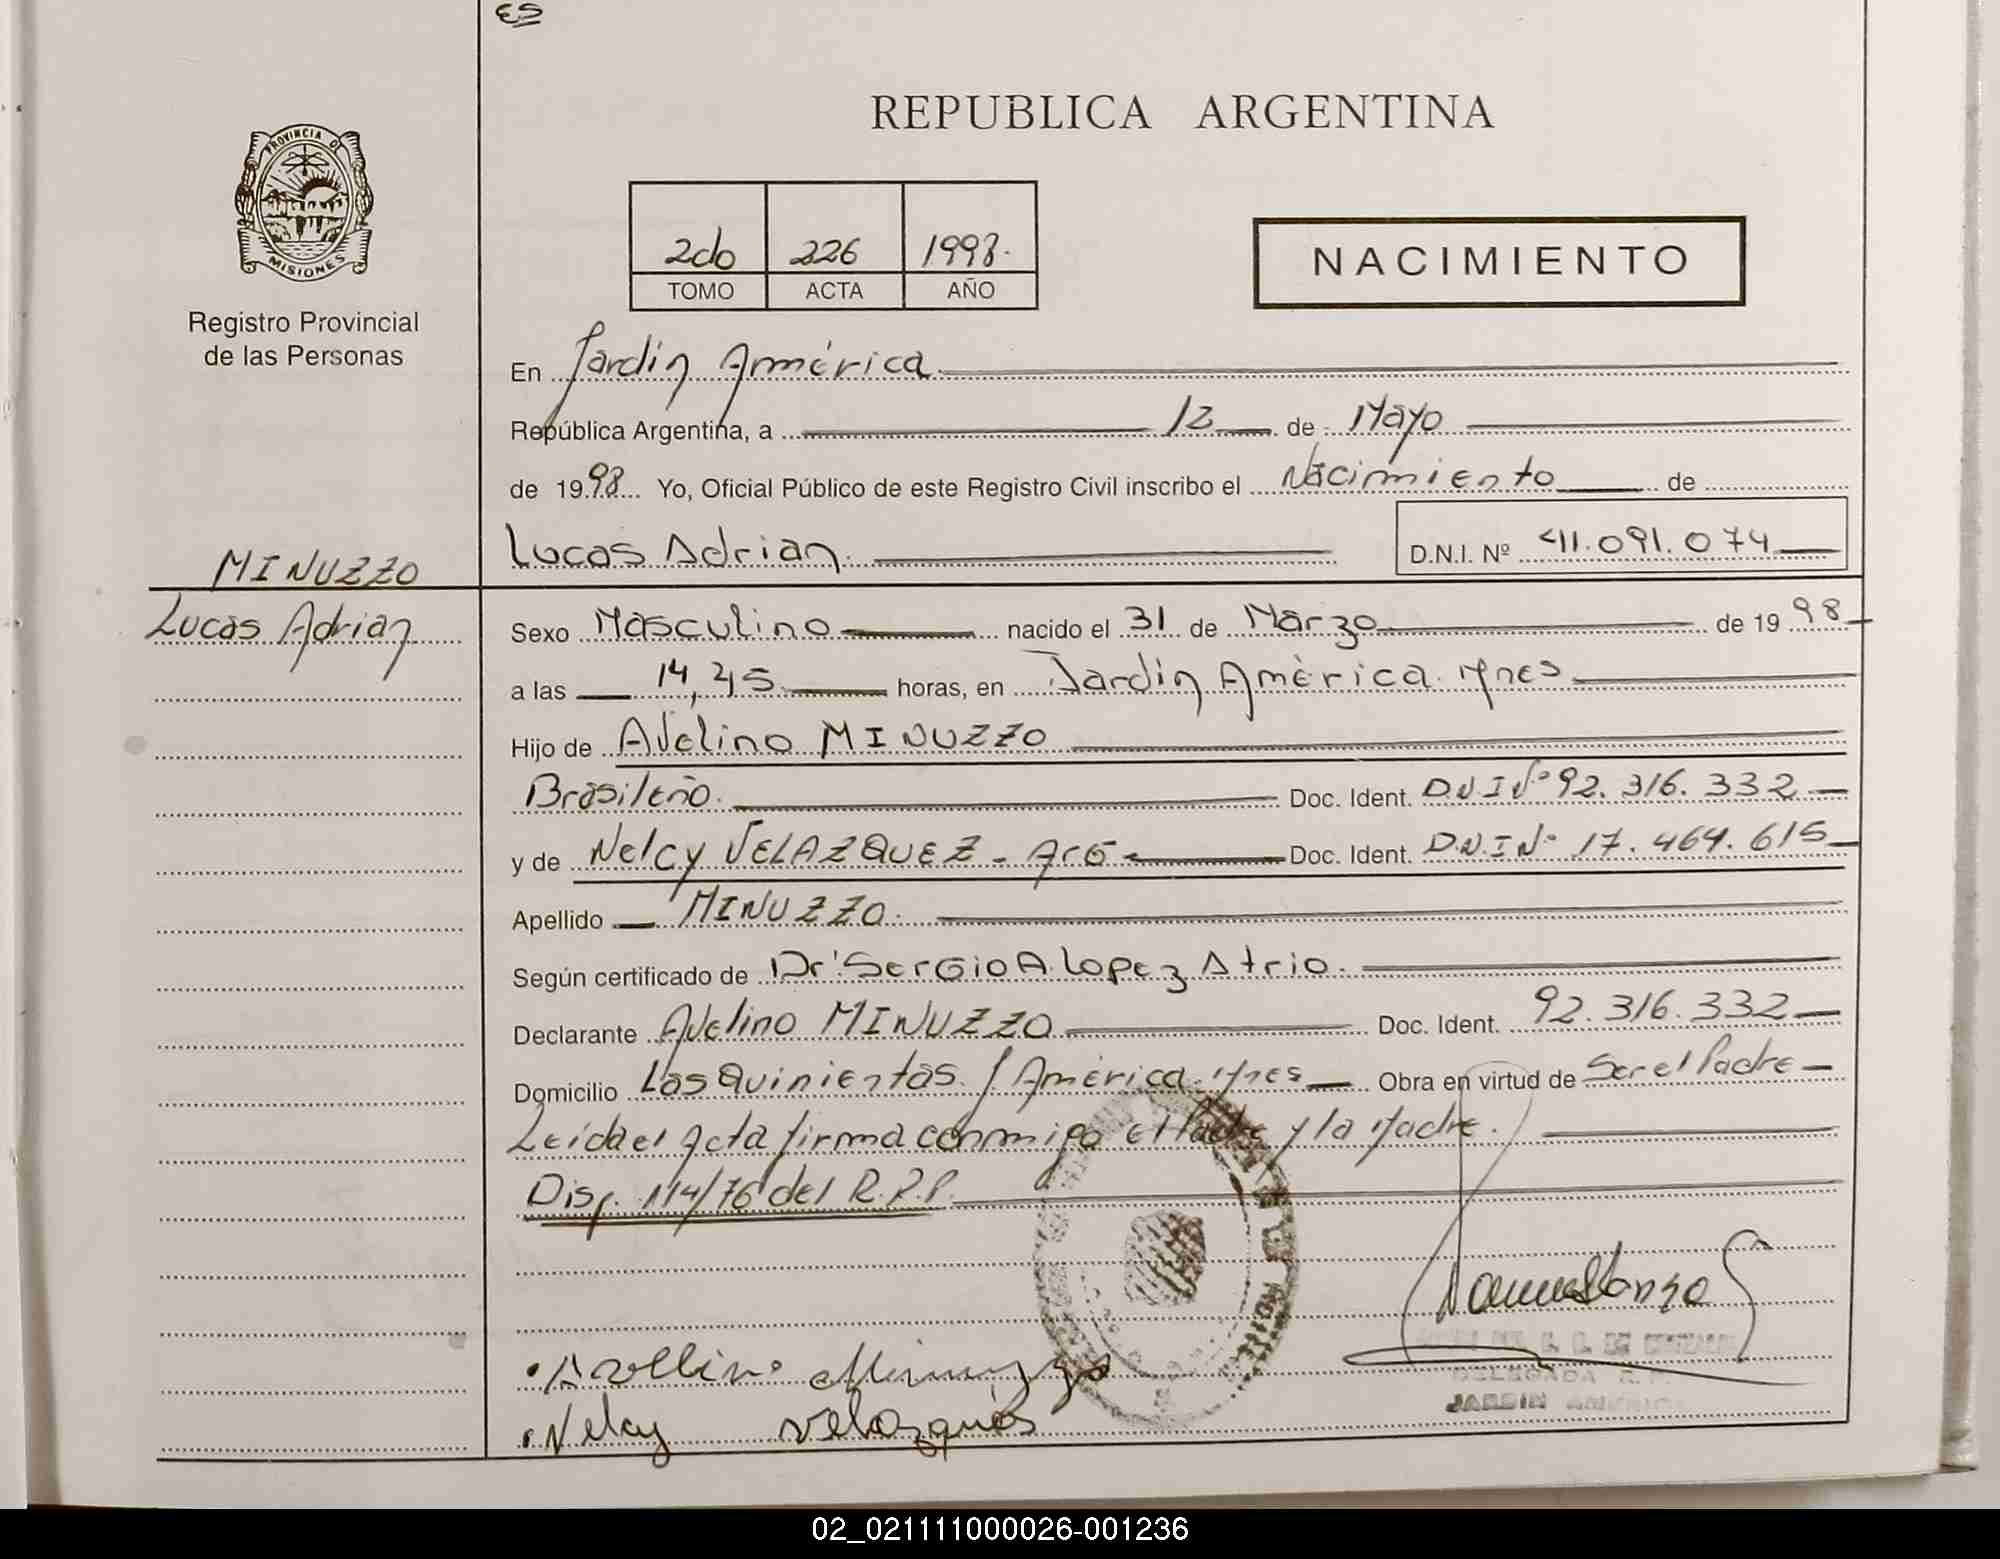 ES
PROVINCIA DE
MISIONES
Registro Provincial
de las Personas
REPUBLICA ARGENTINA
2do 226 1998.
TOMO ACTA AÑO
NACIMIENTO
En Jardín América
República Argentina, a 12 de Mayo
de 1998 Yo, Oficial Público de este Registro Civil inscribo el Nacimiento de
Lucas Adrian. D.N.I. Nº 41.091.074
MINUZZO
Lucas Adrian
Sexo Masculino nacido el 31 de Marzo de 1998
a las 14,45 horas, en Jardín América. Mnes
Hijo de Avelino MINUZZO
Brasileño. Doc. Ident. D.N.I Nº 92.316.332
y de Nelcy VELAZQUEZ - Arg - Doc. Ident. D.N.I Nº 17.464.615
Apellido MINUZZO.
Según certificado de Dr. Sergio A. Lopez Atrio.
Declarante Avelino MINUZZO Doc. Ident. 92.316.332
Domicilio Las Quinientas. J América. Mnes Obra en virtud de Ser el Padre
Leída el Acta firma conmigo el Padre y la Madre.
Disp. 114/76 del R.P.P.
Avellino Minuzzo
Nelcy Velazques
DELEGADA
JARDIN AMERICA
02_021111000026-001236